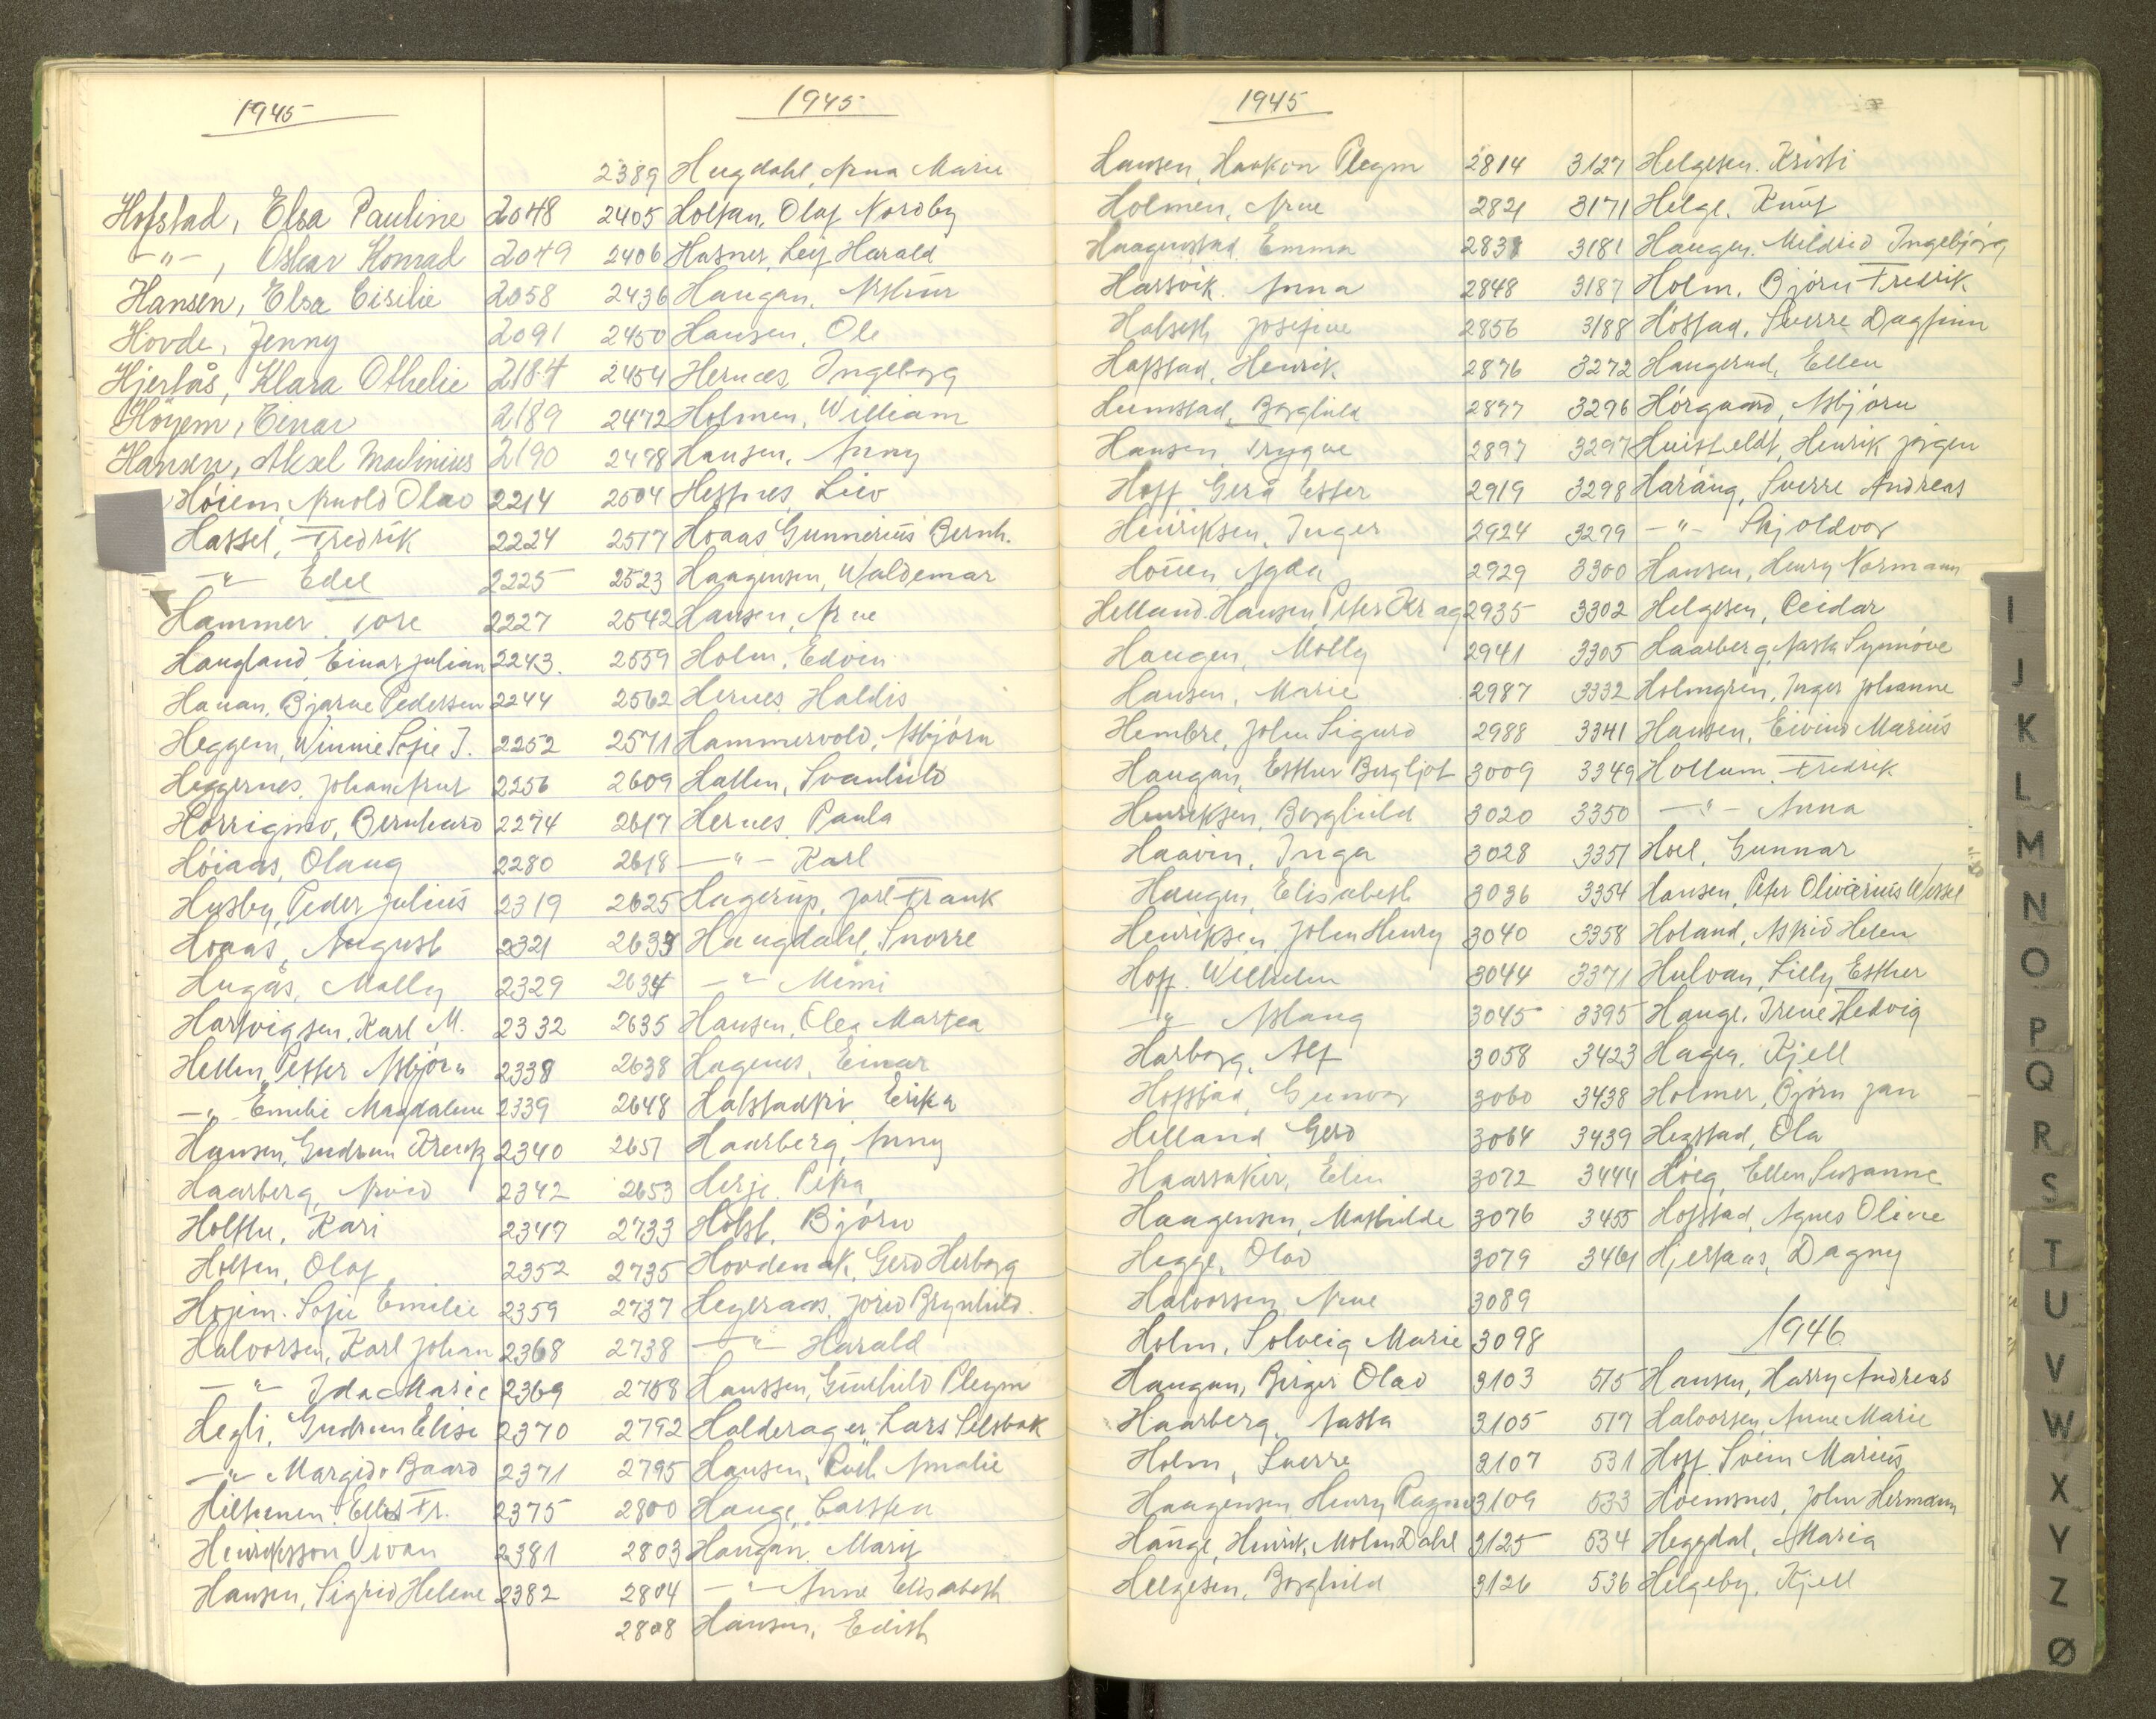 1945
Hofstad, Elsa Pauline 2048
-"-, Oskar Konrad 2049
Hansen, Elsa Cisilie 2058
Hovde, Jenny 2091
Hjertås, Klara Othelie 2184
Höyem, Einar 2189
Hansen, Aksel Marlinius 2190
Höiem, Arnold Olav 2214
Hassel, Fredrik 2224
-"- Edel 2225
Hammer, Tore 2227
Haugland, Einar Julian 2243.
Hanan, Bjarne Pedersen 2244
Heggem, Winnie Sofie J. 2252
Heggernes, Johan Arnt 2256
Horrigmo, Bernhard 2274
Höiaas, Olaug 2280
Husby, Peder Julius 2319
Hoaas, August 2321
Hugås, Molly 2329
Hartvigsen, Karl M. 2332
Hellem, Petter Asbjørn 2338
-"- Emilie Magdalene 2339
Hansen, Gudrun 2340
Haarberg, Arvid 2342
Kari 2347
Holten, Olaf 2352
Hojem. Sofie Emilie 2359
Halvorsen, Karl Johan 2368
-"- Ida Marie 2369
Hegli, Gudrun Elise 2370
-"- Margido Baard 2371
Fr. 2375
Henriksson Vivan 2381
Hansen, Sigrid Helene 2382
1945
2389 Hugdahl, Anna Marie
2405 Holtan, Olaf Nordby
2406 Hasner, Leif Harald
2436 Haugan, Arthur
2450 Hansen, Ole
2454 Hernæs, Ingeborg
2472 Holmen, William
2498 Hansen, Anny
2504 Hestnes, Liv
2517 Hoaas Gunnerius Bernh.
2523 Haagensen, Waldemar
2542 Hansen, Arne
2559 Holm, Edvin
2562 Hernes, Haldis
2571 Hammervold, Asbjörn
2609 Hallen, Svanhild
2617 Hernes, Paula
2618 -"- Karl
2625 Hagerup, Jarl Frank
2633 Haugdahl, Snorre
2634 -"- Mimi
2635 Hansen, Olea Martea
2638 Hagenes, Einar
2648 Erika
2651 Haarberg, Anny
2653 Herje, Petra
2733 Holst, Björn
2735 Hovdenak, Gerd Herborg
2737 Hegeraas, Jorid Brynhild.
2738 -"- Harald
2758 Hanssen, Gunhild Plegm
2792 Halderager, Lars Selsbak
2795 Hansen, Ruth Amalie
2800 Hauge, Carsten
2803 Haugan, Marit
2804 -"- Anne Elisabeth
2808 Hansen, Edith
1945
Hansen, Haakon Plegm 2814
Holmen, Arne 2821
Haagenstad, Emma 2831
Harsvik, Anna 2848
Halseth, Josefine 2856
Hofstad, Henrik 2876
Humstad, Borghild 2877
Hansen, Trygve 2897
Hoff, Gerd Ester 2919
Henriksen, Inger 2924
Agda 2929
Helland-Hansen, Peter Krag 2935
Haugen, Molly 2941
Hansen, Marie 2987
Hembre, John Sigurd 2988
Haugan, Esther Bergljot 3009
Henriksen, Borghild 3020
Haavin, Inga 3028
Haugen, Elisabeth 3036
Henriksen, John Henry 3040
Hoff, Wilhelm 3044
-"- Aslaug 3045
Harborg, Alf 3058
Hofstad, Gunvor 3060
Helland Gerd 3064
Haarsaker, Elin 3072
Haagensen, Mathilde 3076
Hegge, Olav 3079
Halvorsen, Arne 3089
Holm, Solveig Marie 3098
Haugan, Birger Olav 3103
Haarberg, Aasta 3105
Holm, Sverre 3107
Haagensen, Henry Ragnar 3109
Hauge, Henrik Molin Dahl 3125
Helgesen, Borghild 3126
3127 Helgesen, Kristi
3171 Helge, Knut
3181 Haugen, Mildrid Ingebjørg
3187 Holm, Björn Fredrik
3188 Höstad, Sverre Dagfinn
3272 Haugerud, Ellen
3296 Hörgaard, Asbjörn
3297 Huistfeldt, Henrik Jörgen
3298 Haráng, Sverre Andreas
3299 -"- Skjoldvor
3300 Hansen, Henry Normann
3302 Helgesen, Reidar
3305 Haarberg, Aasta Synnöve
3332 Holmgren, Inger Johanne
3341 Hansen, Eivind Marius
3349 Hollum, Fredrik
3350 -"- Anna
3351 Hoel, Gunnar
3354 Hansen, Peter Olivarius Wessel
3358 Holand, Astrid Helen
3371 Hulvan, Lilly Esther
3395 Hauge, Irene Hedvig
3423 Hagen, Kjell
3438 Holmer, Björn Jan
3439 Hegstad, Ola
3444 Höeg, Ellen Susanne
3455 Hofstad, Agnes Oline
3461 Hjertaas, Dagny
1946
515 Hansen, Harry Andreas
517 Halvorsen, Anne Marie
531 Hoff, Svein Marius
533 Hoemsnes, John Hermann
534 Heggdal, Maria
536 Helgeby, Kjell
I
J
K
L
M
N
O
P
Q
R
S
T
U
V
W
X
Y
Z
Ø